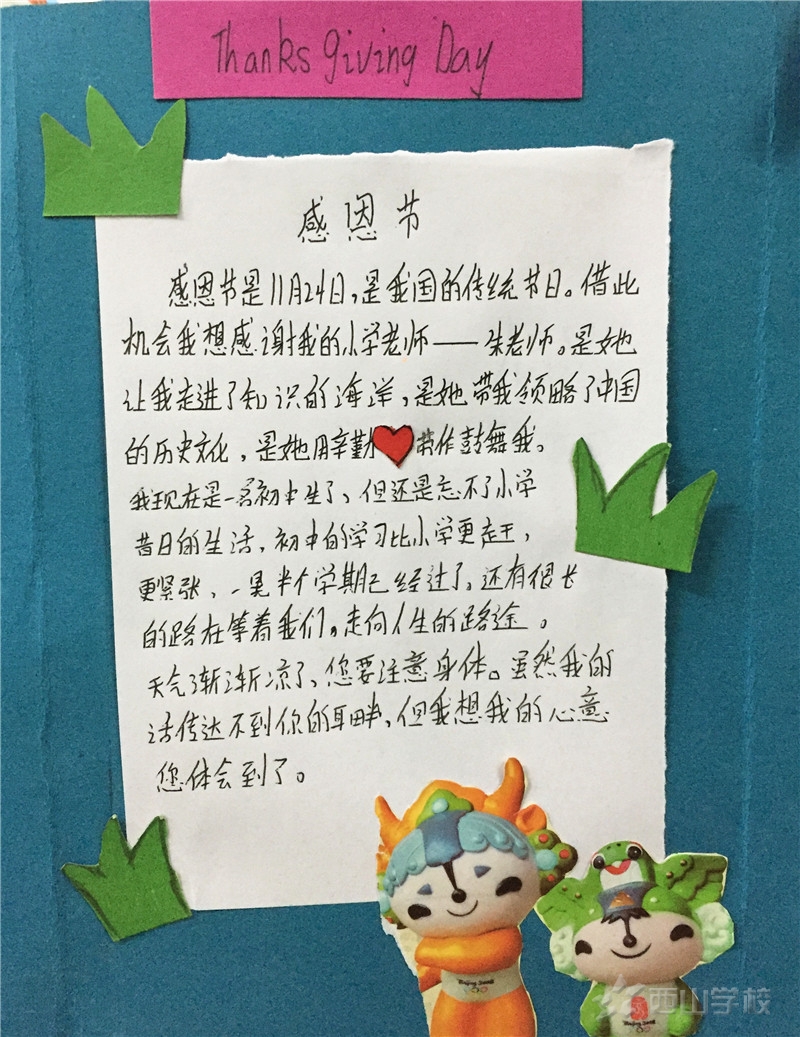 Thanksgiving Day
感恩节
感恩节是11月24日，是我国的传统节日。借此
机会我想感谢我的小学老师——朱老师。是她
让我走进了知识的海洋，是她带我领略了中国
的历史文化，是她用辛勤作鼓舞我。
我现在是一名初中生了、但还是忘不了小学
昔日的生活，初中的学习比小学更
更紧张，一晃半个学期已经过了。还有很长
的路在等着我们。走向人生的路途。
天气渐渐凉了、您要注意身体。虽然我的
话传达不到你的耳畔，但我想我的心意
您体会到了。
Beijing 2008
Beijing 2008
西山学校